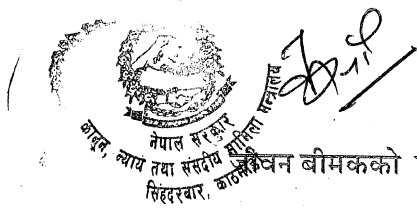 नेपाल सरकार
कानून, न्याय तथा संसदीय मामिला मन्त्रालय
सिंहदरबार, काठमाडौं
जीवन बीमकको